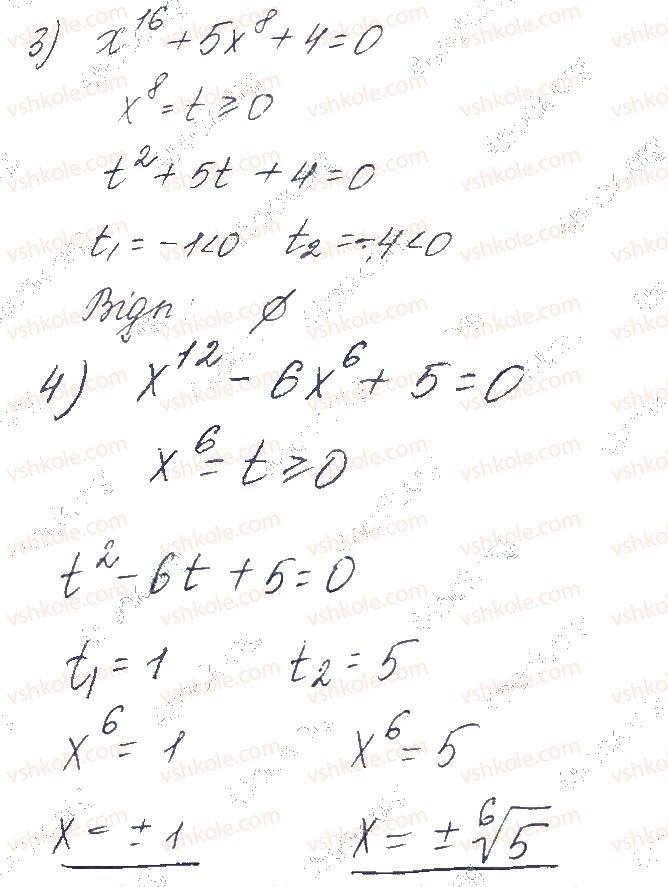 3) x¹⁶ + 5x⁸ + 4 = 0
x⁸ = t ⩾ 0
t² + 5t + 4 = 0
t₁ = -1<0 t₂ = -4<0
Відп: ∅
4) x¹² - 6x⁶ + 5 = 0
x⁶ = t ⩾ 0
t² - 6t + 5 = 0
t₁ = 1 t₂ = 5
x⁶ = 1 x⁶ = 5
x = ± 1 x = ± ⁶√5
vshkole.com